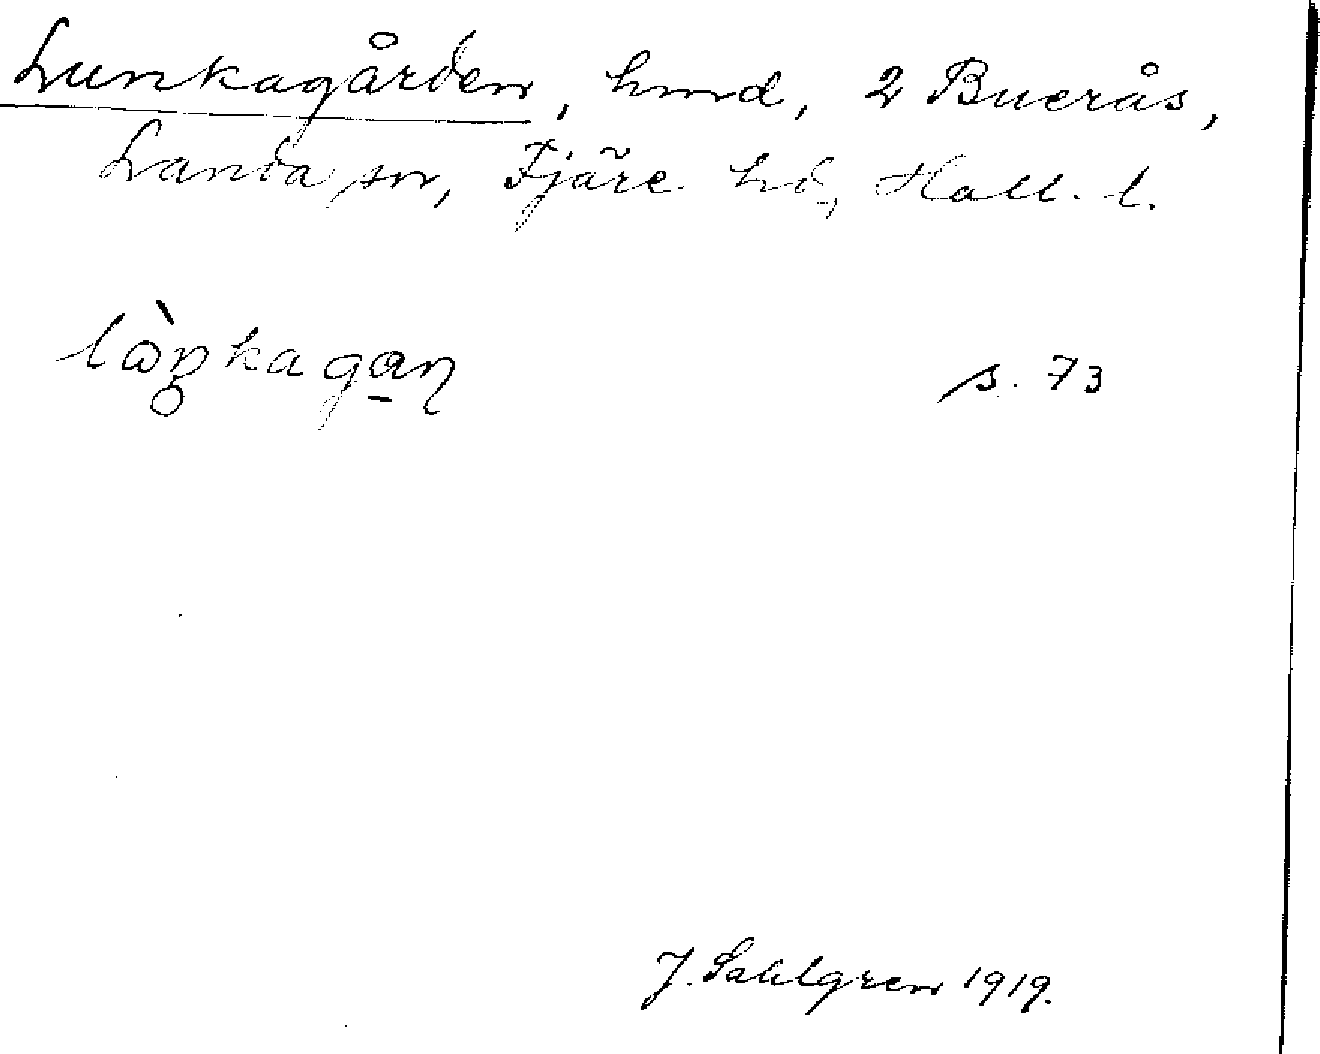 Lunkagården, hmd, 2 Buerås,
Landa sn, Fjäre hd, Hall. l.
lὼŋkagan s. 73
J. Sahlgren 1919.